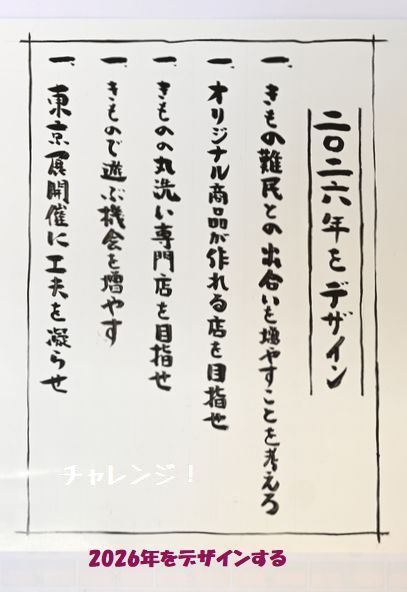 二〇二六年をデザイン
一、きもの難民との出合いを増やすことを考えろ
一、オリジナル商品が作れる店を目指せ
一、きものの丸洗い専門店を目指せ
一、きもので遊ぶ機会を増やす
一、東京展開催に工夫を凝らせ
チャレンジ！
2026年をデザインする